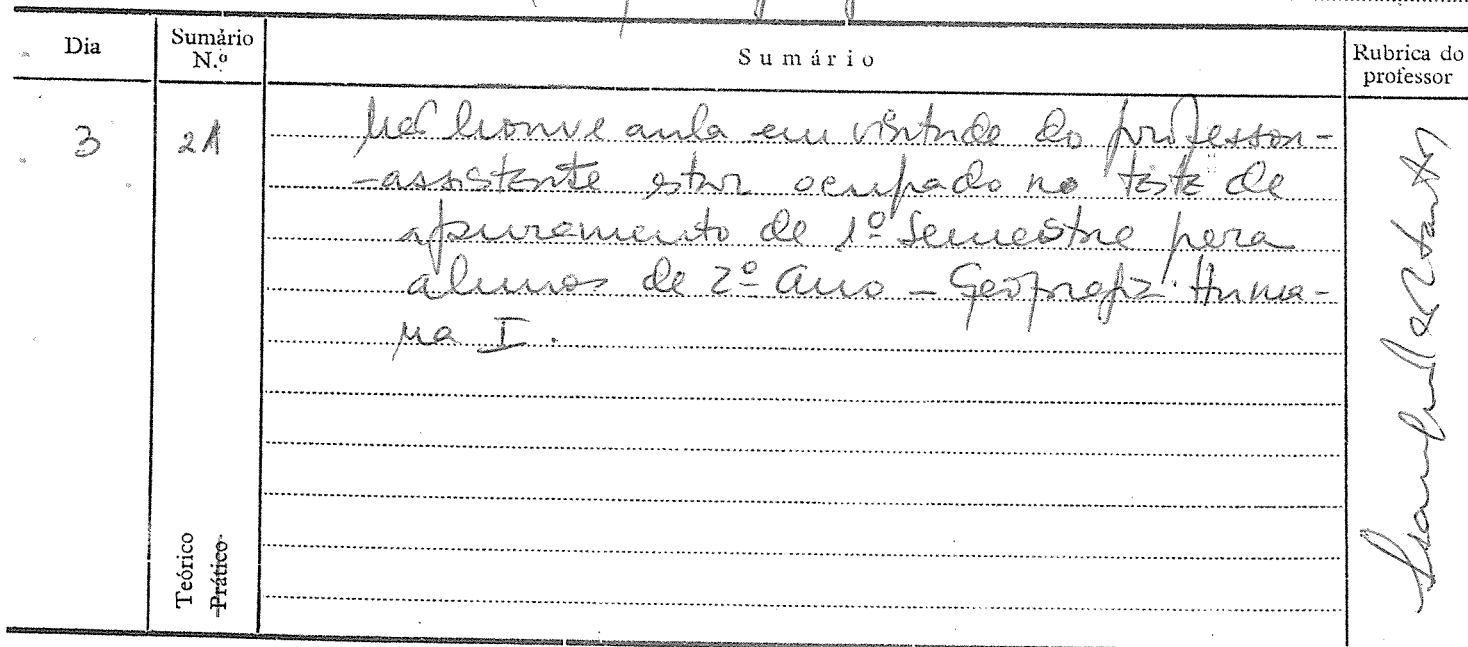 Dia
Sumário N.º
Sumário
Rubrica do professor
3
21
Não houve aula em virtude do professor-
-assistente estar ocupado no teste de
apuramento de 1º Semestre para
alunos de 2º Ano - Geografia Huma-
na I.
Teórico
Prático